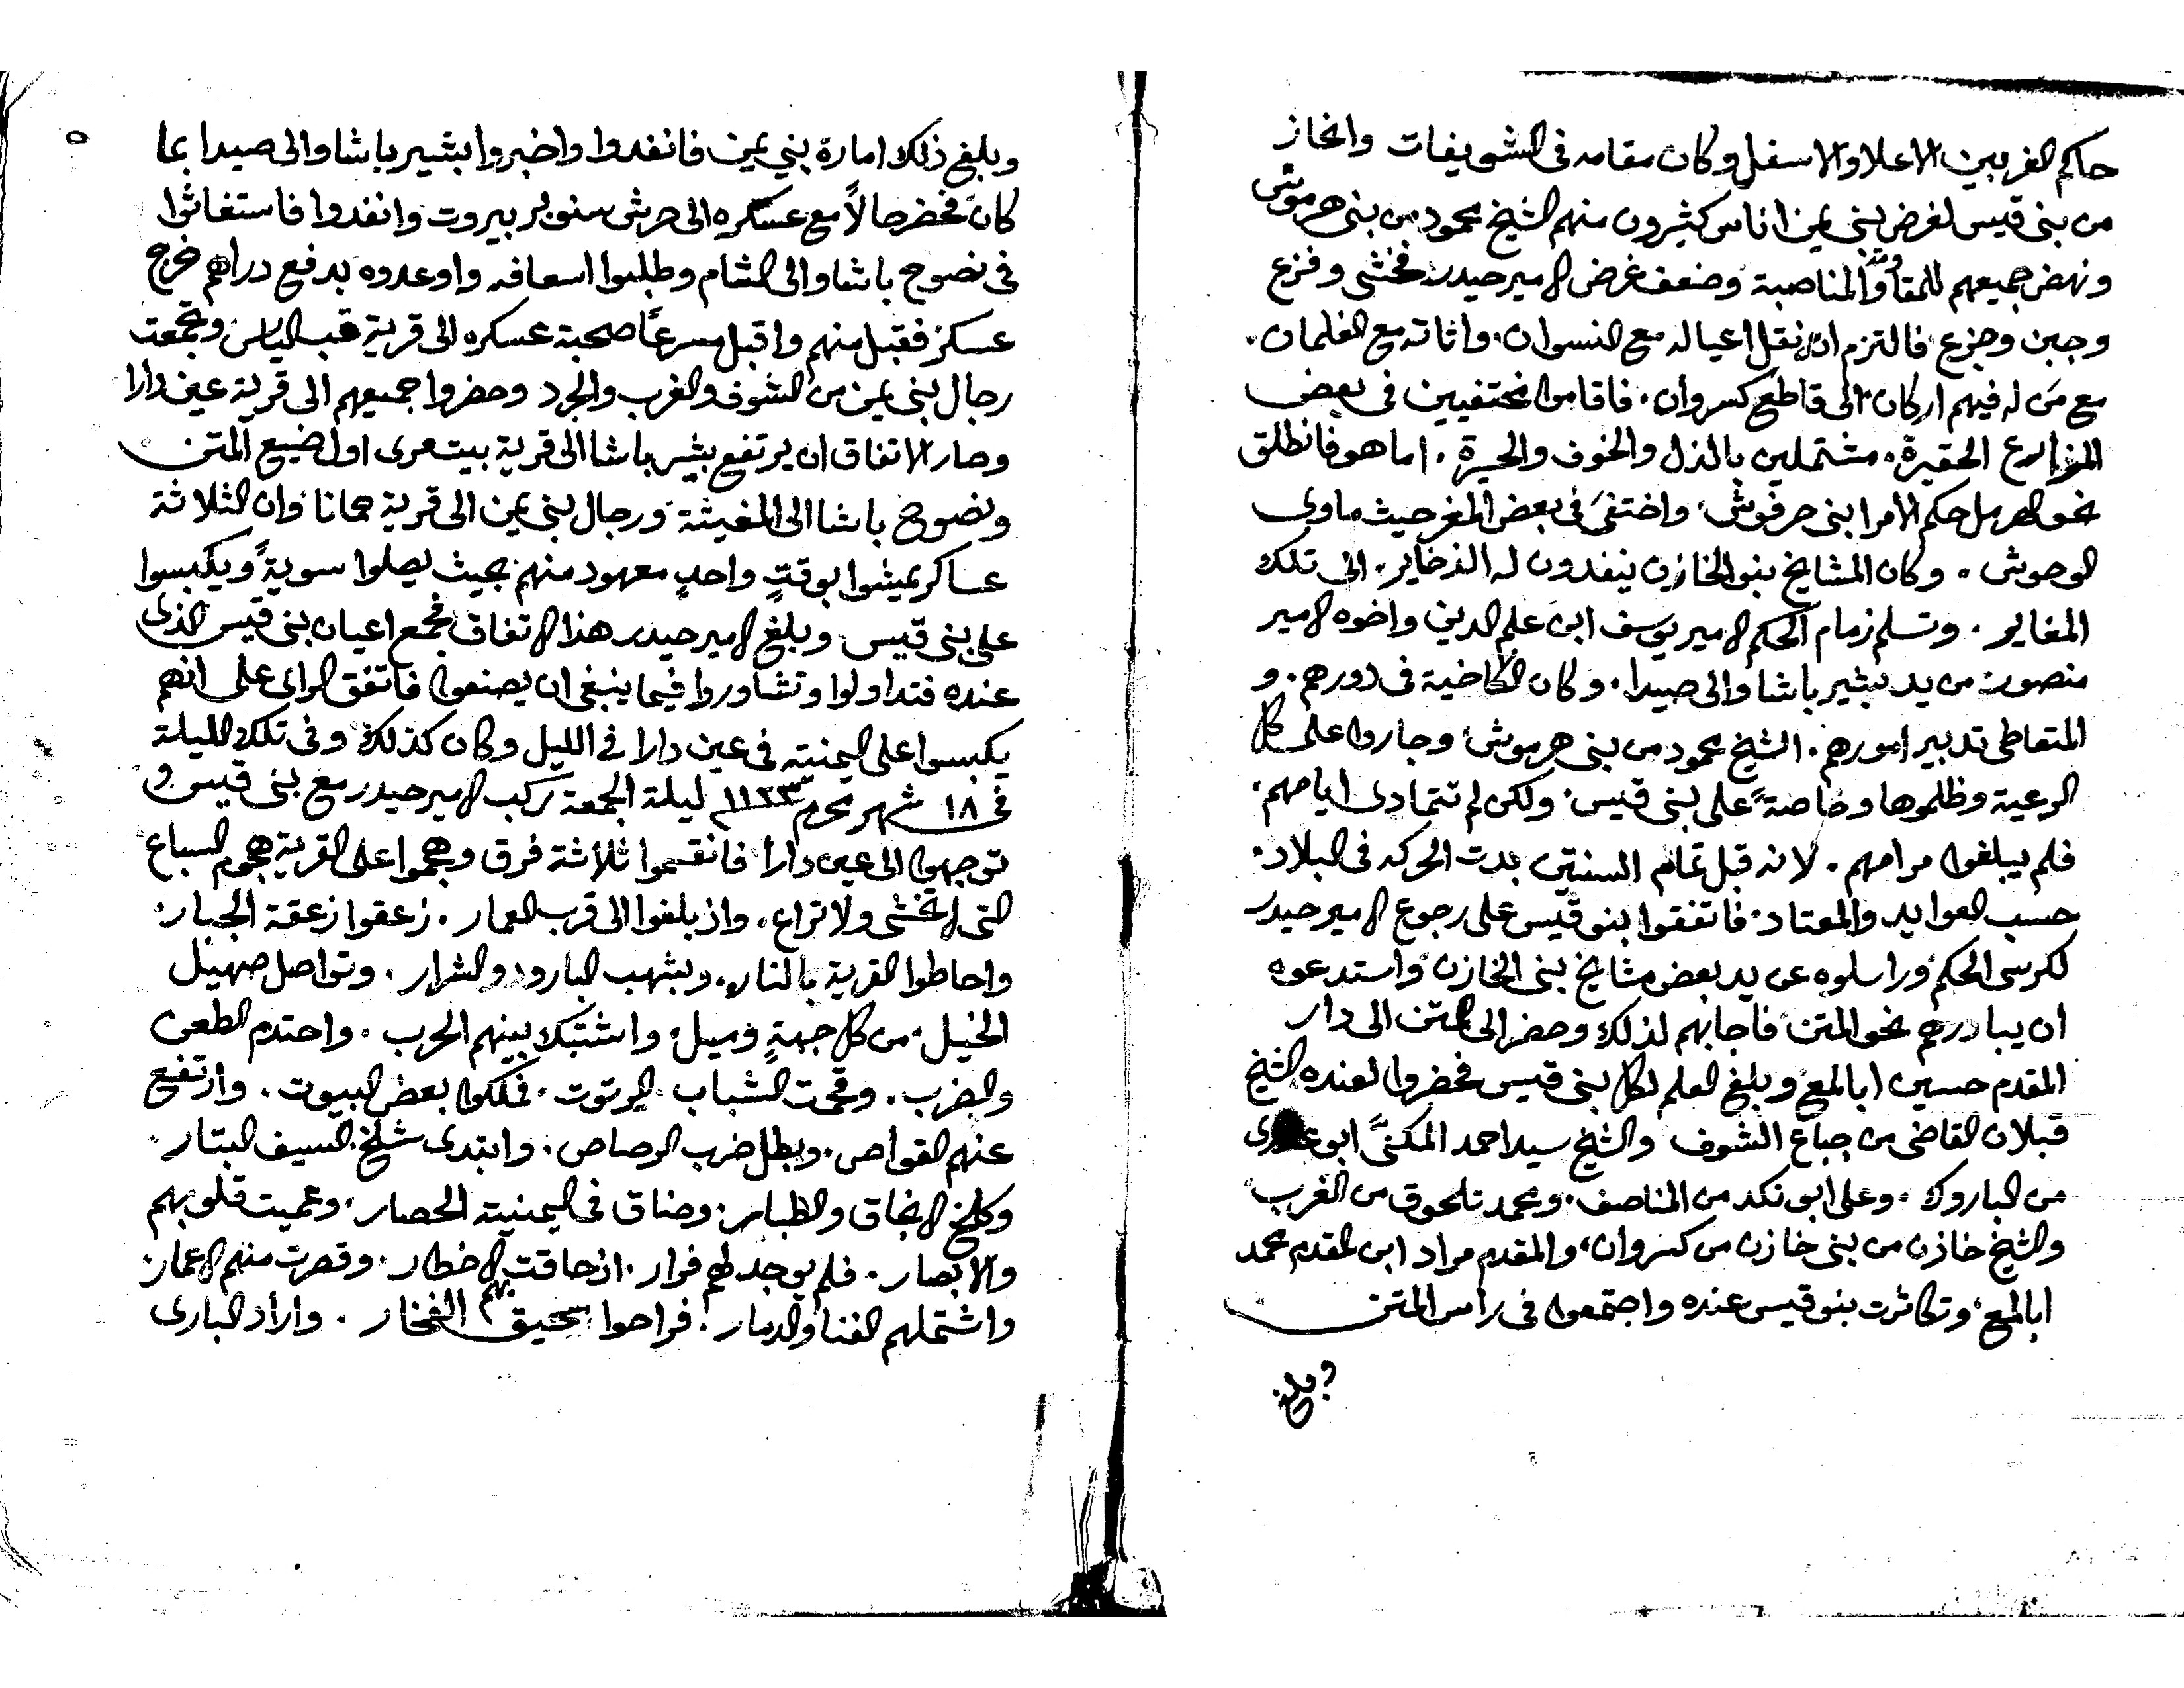 حاكم الغربيين الاعلا والاسفل وكان مقامه فى الشويفات وانحاز
من بنى قيس لغرض بنى يمن اناس كثيرون منهم الشيخ محمود من بنى هرموش
ونهض جميعهم للمقاومة والمناصبة وضعف غرض الامير حيدر فخشى وفزع
وجبن وجزع فالتزم ان نقل اعياله مع النسوان واثاثه مع الغلمان.
مع من له فيهم اركان الى قاطع كسروان. فاقاموا مختفيين فى بعض
المزارع الحقيرة. مشتملين بالذل والخوف والحيرة. اما هو فانطلق
نحو الهرمل حكم الامرا بنى حرفوش واختفى فى بعض المغر حيث ماوى
الوحوش. وكان المشايخ بنو الخازن ينفدون له الذخاير. الى تلك
المغاير. وتسلم زمام الحكم الامير يوسف ابن علم الدين واخوه الامير
منصور من يد بشير باشا والى صيدا. وكان الكاخية فى دورهم. و
المتعاطى تدبير امورهم. الشيخ محمود من بنى هرموش وجاروا على كل
الرعية وظلموها وخاصةً على بنى قيس. ولكن لم تتمادى ايامهم.
فلم يبلغوا مرامهم. لانه قبل تمام السنتين بدت الحركه فى البلاد.
حسب العوايد والمعتاد. فاتفقوا بنو قيس على رجوع الامير حيدر
لكرسى الحكم وراسلوه عن يد بعض مشايخ بنى الخازن واستدعوه
ان يبادرهم نحو المتن فاجابهم لذلك وحضر الى المتن الى دار
المقدم حسين ابا لمع وبلغ العلم لكل بنى قيس فحضروا لعنده الشيخ
قبلان القاضى من جباع الشوف والشيخ سيد احمد المكنىّ ابو
من الباروك. وعلى ابو نكد من المناصف. ومحمد تلحوق من الغرب
والشيخ خازن من بنى خازن من كسروان، والمقدم مراد ابن المقدم محمد
ابا لمع وتكاثرت بنو قيس عنده واجتمعوا فى راس المتن
بلغ
وبلغ ذلك امارة بني يمن فانفدوا واخبروا بشير باشا والى صيدا بما
كان فحضر حالاً مع عسكره الى حرش سنوبر بيروت وانفدوا فاستغاثوا
فى نصوح باشا والى الشام وطلبوا اسعافه واوعدوه بدفع دراهم خرج
عسكر فقبل منهم واقبل مسرعاً صحبة عسكره الى قرية قب الياس وتجمعت
رجال بنى يمن من الشوف والغرب والجرد وحضروا جميعهم الى قرية عين دارا
وصار الاتفاق ان يرتفع بشير باشا الى قرية بيت مرى اول ضيع المتن
ونصوح باشا الى المغيثة ورجال بنى يمن الى قرية حمانا وان الثلاثة
عساكر يمشوا بوقتٍ واحدٍ معهود منهم بحيث يصلوا سويةً ويكبسوا
على بنى قيس وبلغ الامير حيدر هذا الاتفاق فجمع اعيان بنى قيس الذى
عنده فتداولوا وتشاوروا فيما ينبغى ان يصنعوا فاتفق الراى على انهم
يكبسوا على اليمنيه فى عين دارا فى الليل وكان كذلك وفى تلك الليلة
فى ١٨ شهر محرم ١١٢٣ ليلة الجمعة ركب الامير حيدر مع بنى قيس و
توجهوا الى عين دارا فانقسموا ثلاثة فرق وهجموا على القرية هجوم السباع
التى لا تخشى ولا تراع. واذ بلغوا الى قرب العمار. زعقوا زعقة الجبار.
واحاطوا القرية بالنار. وبشهب البارود والشرار. وتواصل صهيل
الخيل. من كل جهةٍ وميل. واشتبك بينهم الحرب. واحتدم الطعن
والضرب. وقحمت الشباب البرتوت. فملكوا بعض البيوت. وارتفع
عنهم القواص. وبطل ضرب الرصاص. وابتدى شلخ السيف البتار.
وكلخ الانجاق والطبار. وضاق فى اليمنيه الحصار. وعميت قلوبهم
والابصار. فلم يوجد لهم فرار. اذ حاقت بهم الاخطار. وقصرت منهم الاعمار
واشتملهم الفنا والدمار. فراحوا سحيق الفخار. واراد البارى